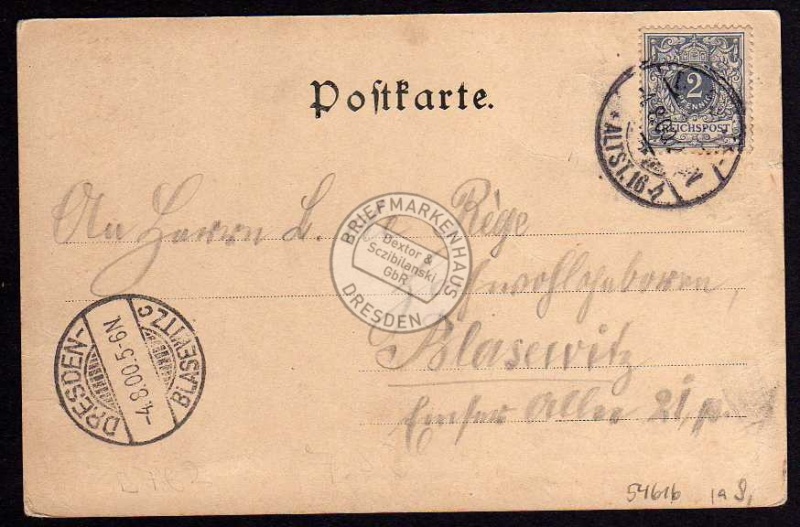 Postkarte.
2
PFENNIG
REICHSPOST
ALTST. 16
An Herrn L. Rège
Hochwohlgeboren,
Blasewitz
Emser Allee 21, p.
BRIEFMARKENHAUS
Dextor &
Sczibilanski
GbR
DRESDEN
DRESDEN-
-4.8.00.5-6N.
BLASEWITZ c
54616 1a